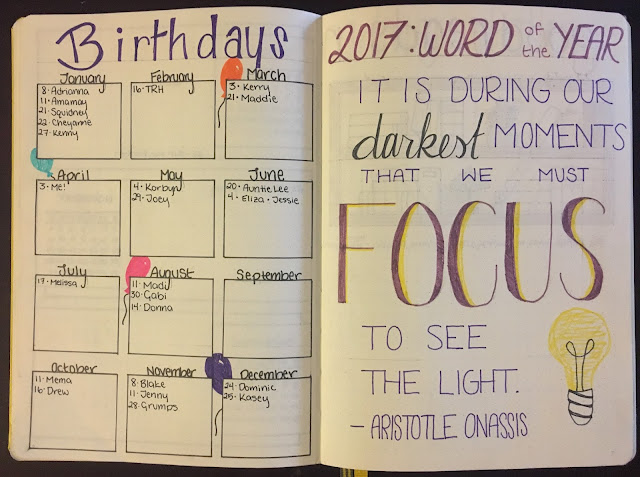 Birthdays
January
8· Adrianna
11· Amamay
21· Squidney
22· Cheyanne
27· Kenny
February
16· TRH
March
3· Kerry
21· Maddie
April
3· Me!
May
4· Korbyn
29· Joey
June
20· Auntie Lee
4· Eliza · Jessie
July
17· Melissa
August
11· Madi
30· Gabi
14· Donna
September
October
11· Mema
16· Drew
November
8· Blake
11· Jenny
28· Grumps
December
24· Dominic
25· Kasey
2017: WORD of the YEAR
IT IS DURING OUR
darkest MOMENTS
THAT WE MUST
FOCUS
TO SEE
THE LIGHT.
- ARISTOTLE ONASSIS